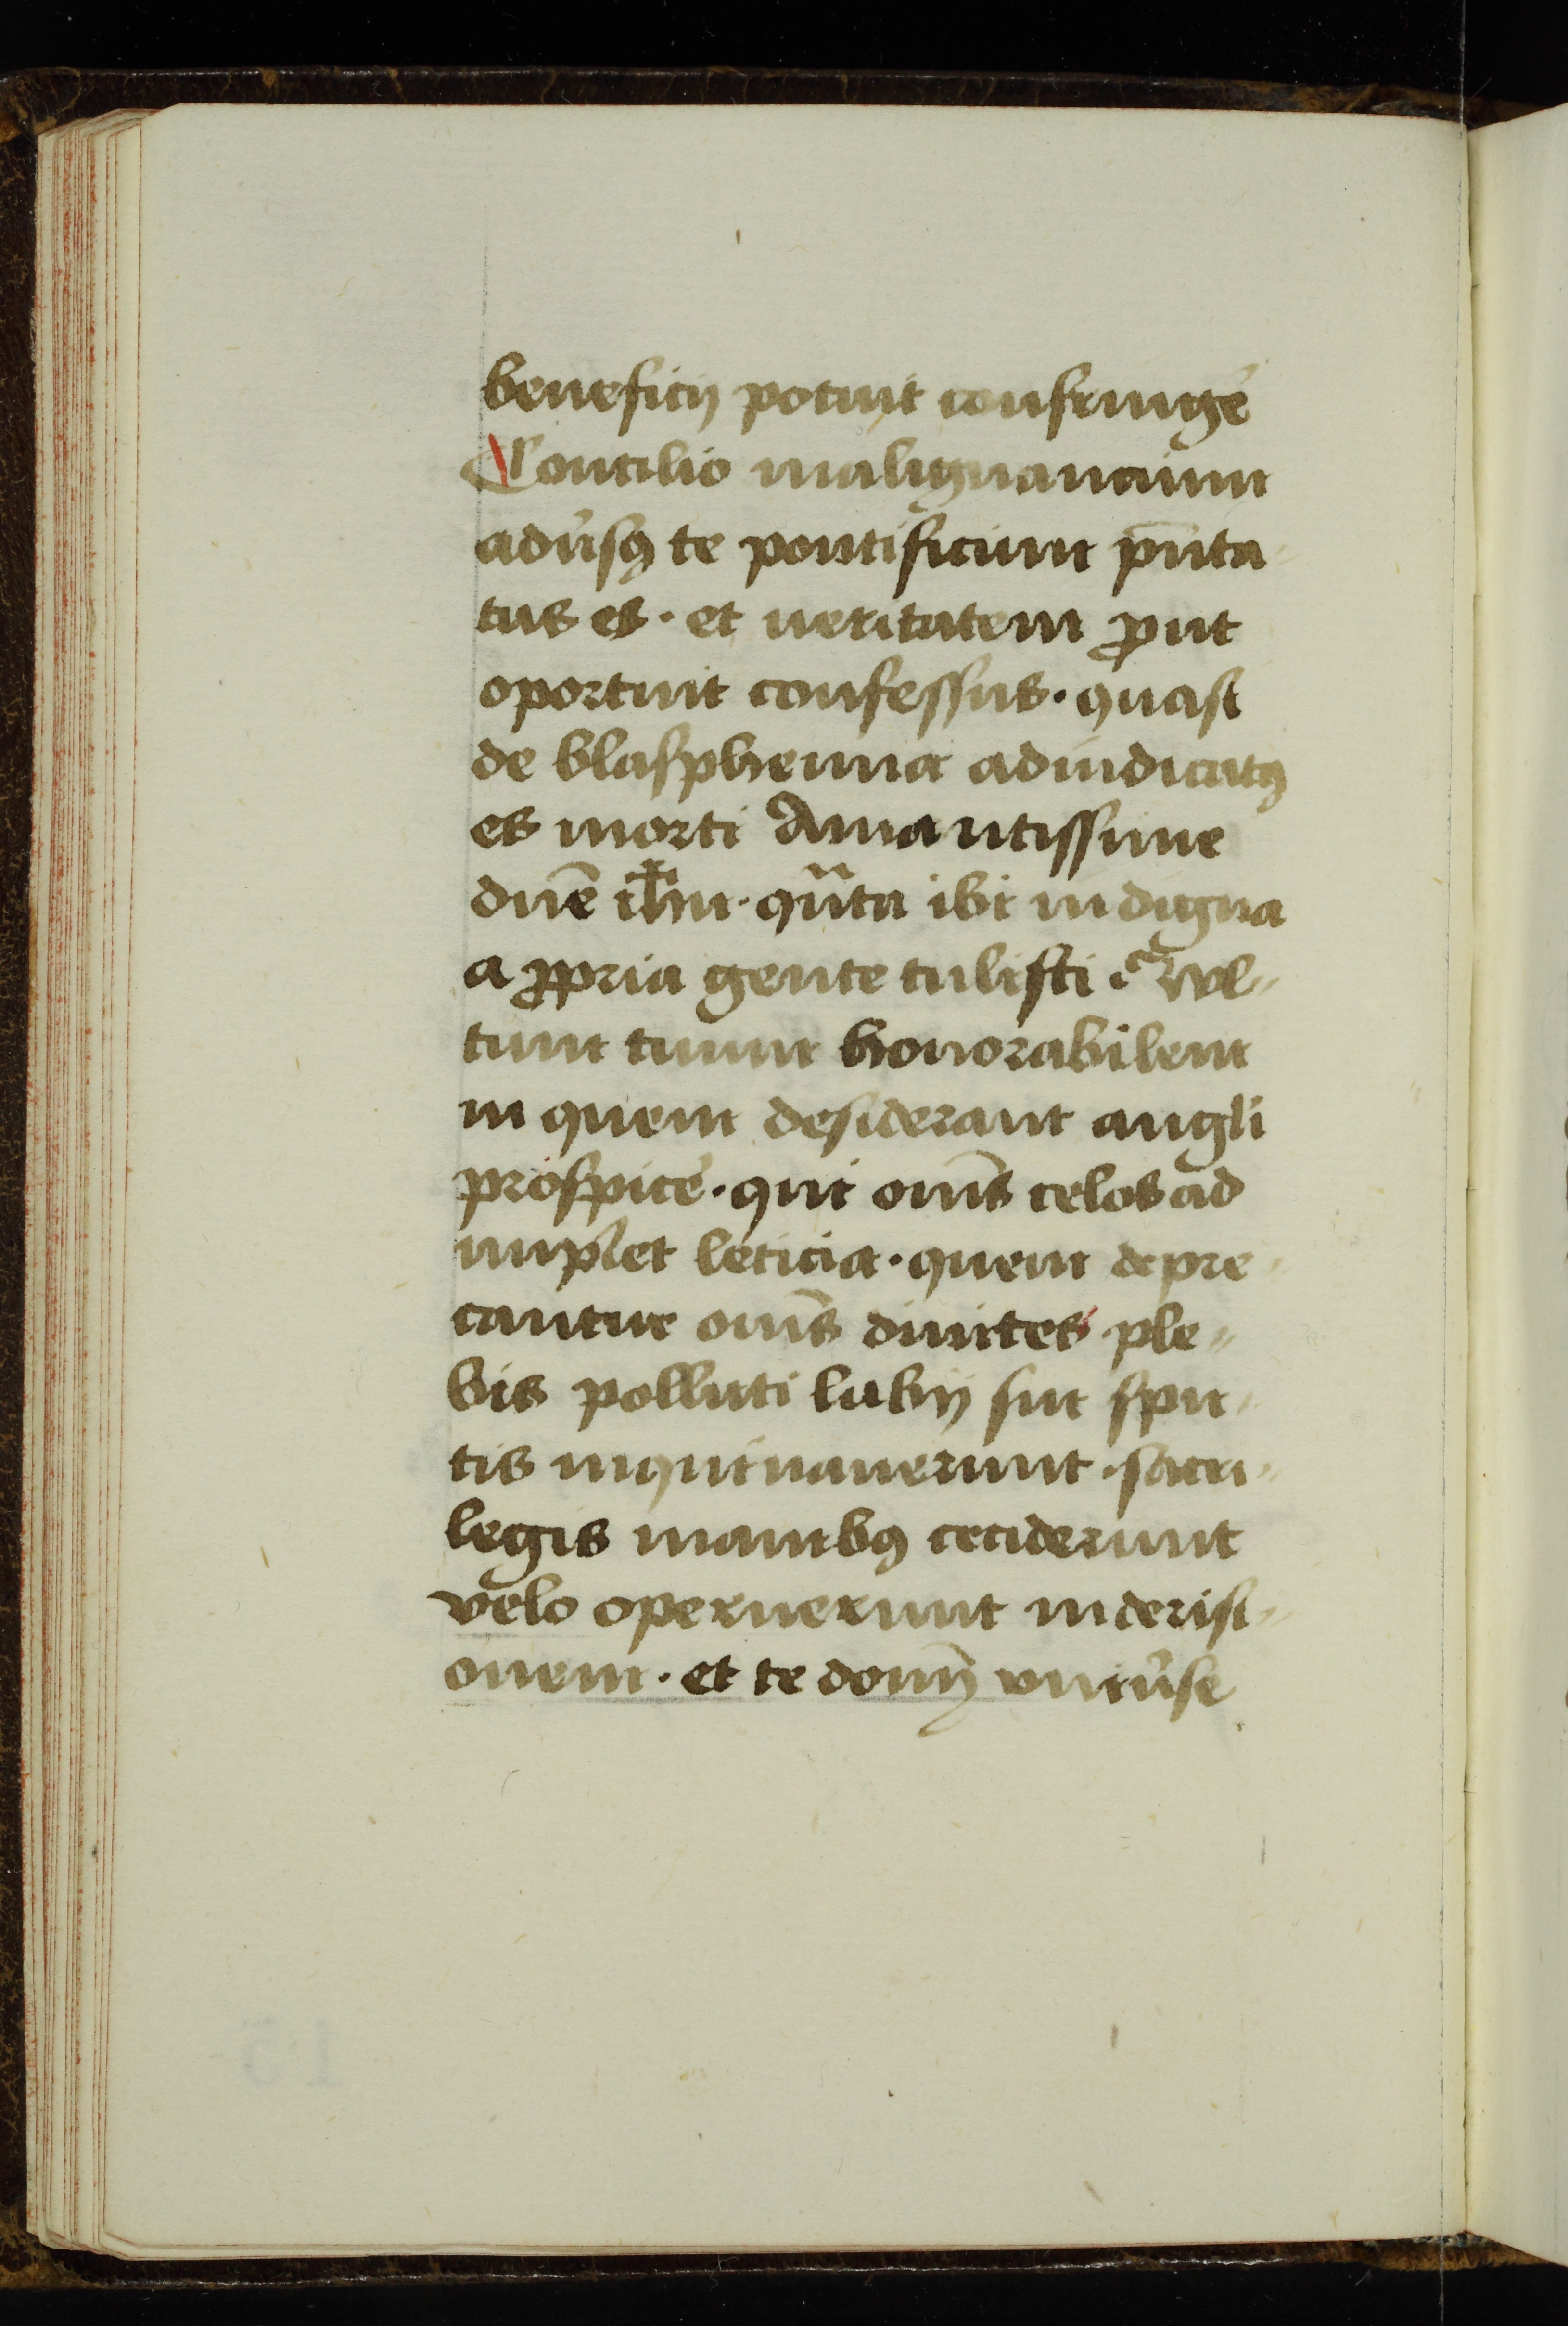 beneficij potuit confringe͛
Concilio malignancium
adu͛sꝰ te pontificum p̄nta
tus es · et ueritatem ꝓut
oportuit confessus · quasi
de blasphemia adiudicatꝰ
es morti Amantissime
dn̄e ih̄u · qn̄ta ibi indigna
a ꝓpria gente tulisti · Wl〃
tum tuum honorabilem
in quem desiderant angli
prospice͛ · qui om̄s celos ad
implet leticia · quem depre〃
cantur om̄s diuites ple〃
bis polluti labij sui spu〃
tis inquinauerunt · sacri〃
legis manibꝰ ceciderunt
velo operuerunt in derisi〃
onem · et te dom̄ vniu͛se